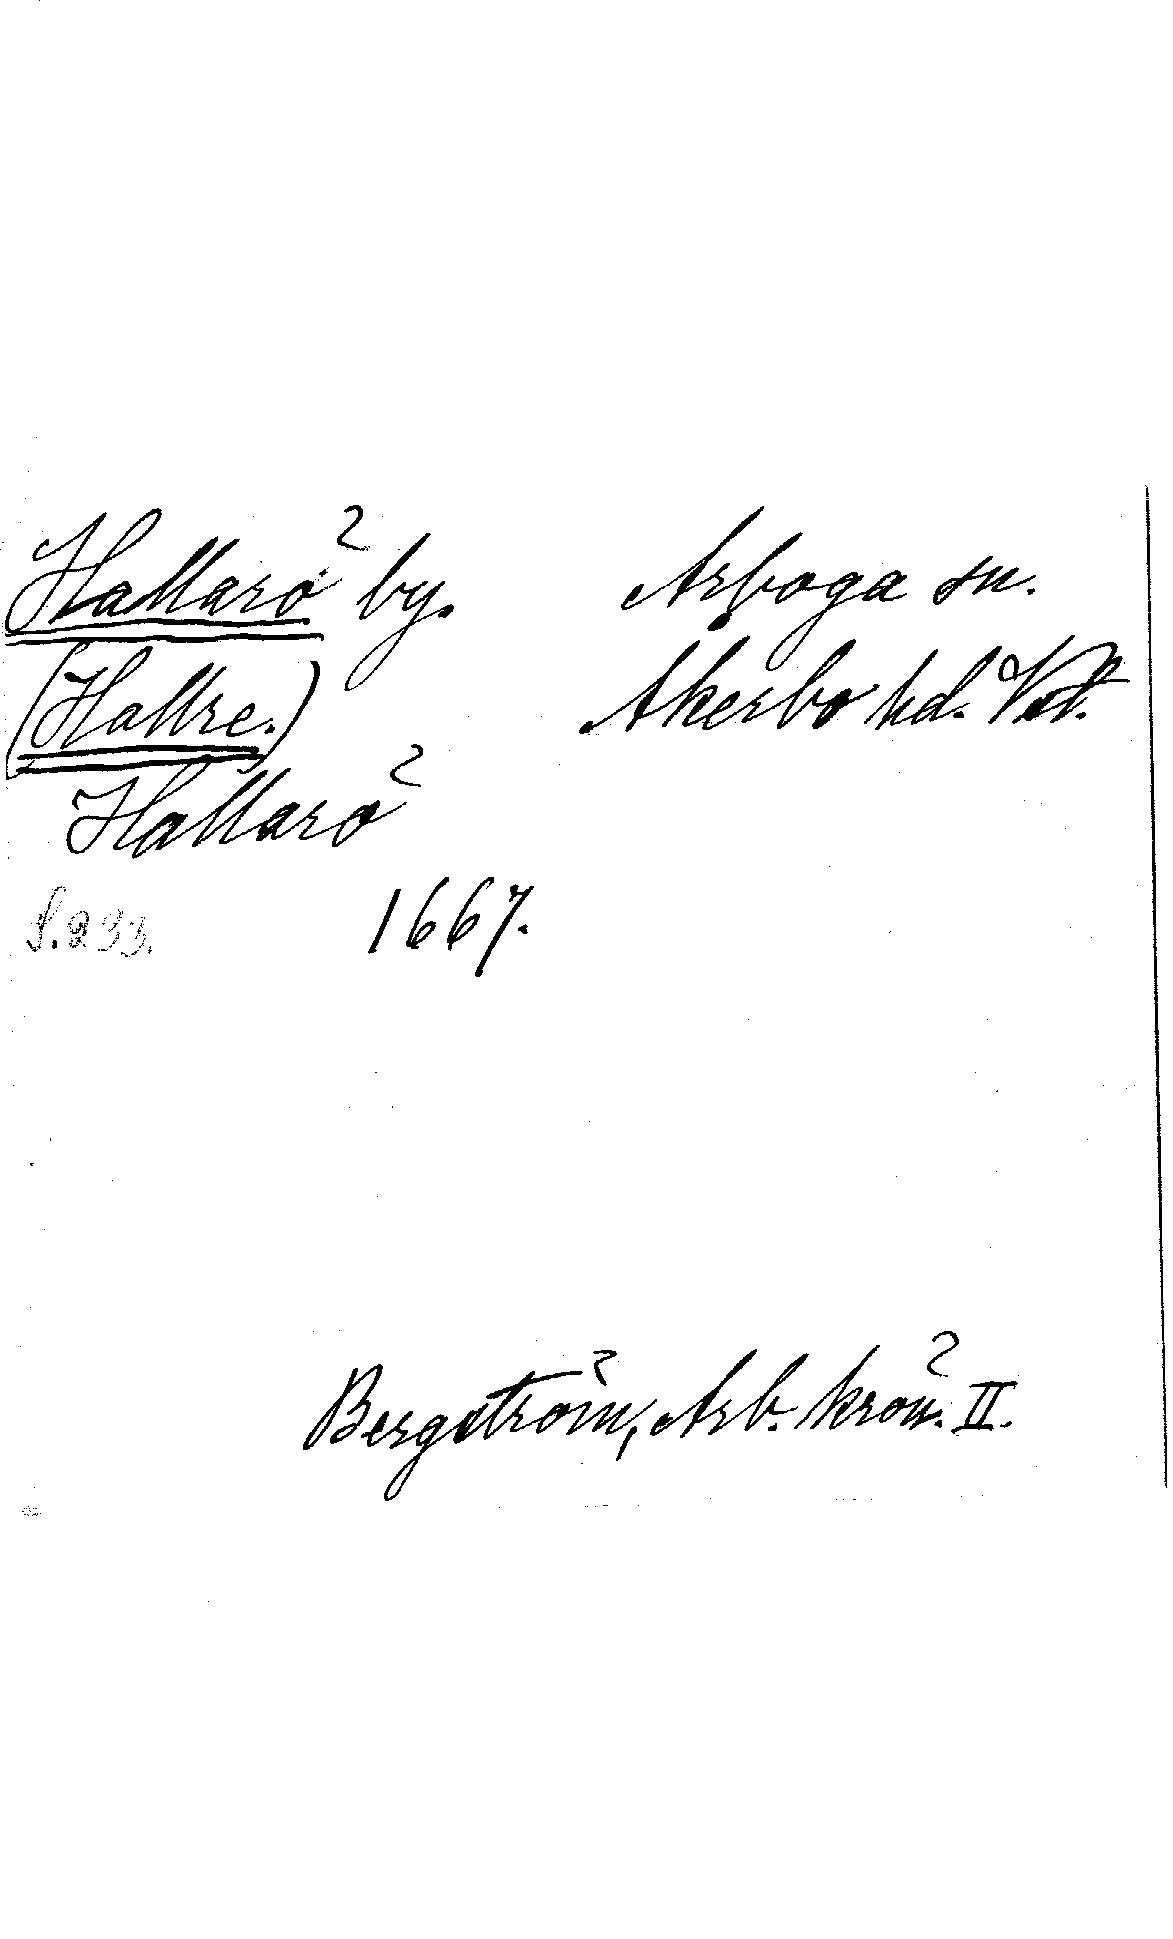 Hallarö by. Arboga sn.
(Hallre.) Åkerbo hd. Vstl.
Hallarö
S. 233. 1667.
Bergström, Arb. krön. II.